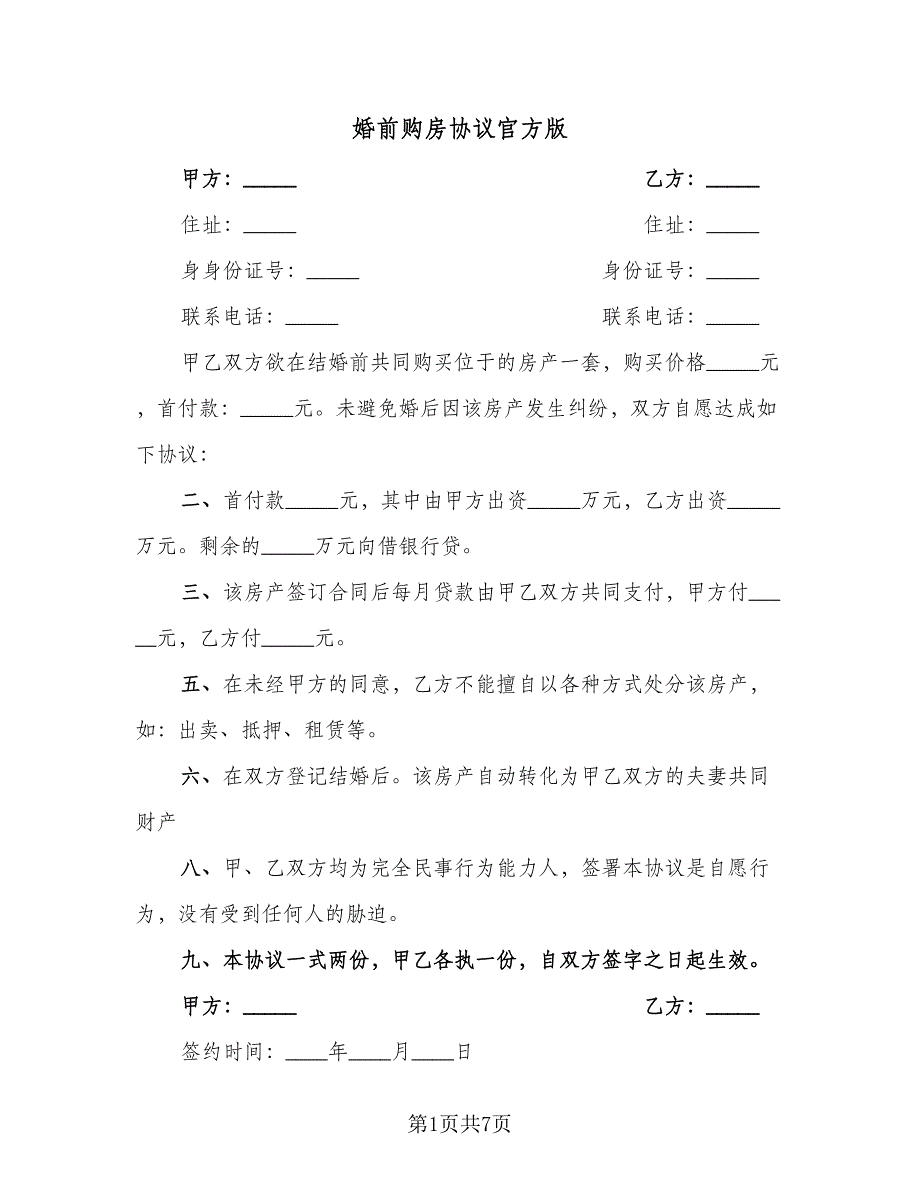 婚前购房协议官方版
甲方：_____ 乙方：_____
住址：_____ 住址：_____
身身份证号：_____ 身份证号：_____
联系电话：_____ 联系电话：_____
甲乙双方欲在结婚前共同购买位于的房产一套，购买价格_____元
，首付款：_____元。未避免婚后因该房产发生纠纷，双方自愿达成如
下协议：
二、首付款_____元，其中由甲方出资_____万元，乙方出资_____
万元。剩余的_____万元向借银行贷。
三、该房产签订合同后每月贷款由甲乙双方共同支付，甲方付___
__元，乙方付_____元。
五、在未经甲方的同意，乙方不能擅自以各种方式处分该房产，
如：出卖、抵押、租赁等。
六、在双方登记结婚后。该房产自动转化为甲乙双方的夫妻共同
财产
八、甲、乙双方均为完全民事行为能力人，签署本协议是自愿行
为，没有受到任何人的胁迫。
九、本协议一式两份，甲乙各执一份，自双方签字之日起生效。
甲方：_____ 乙方：_____
签约时间：____年____月____日
第1页共7页